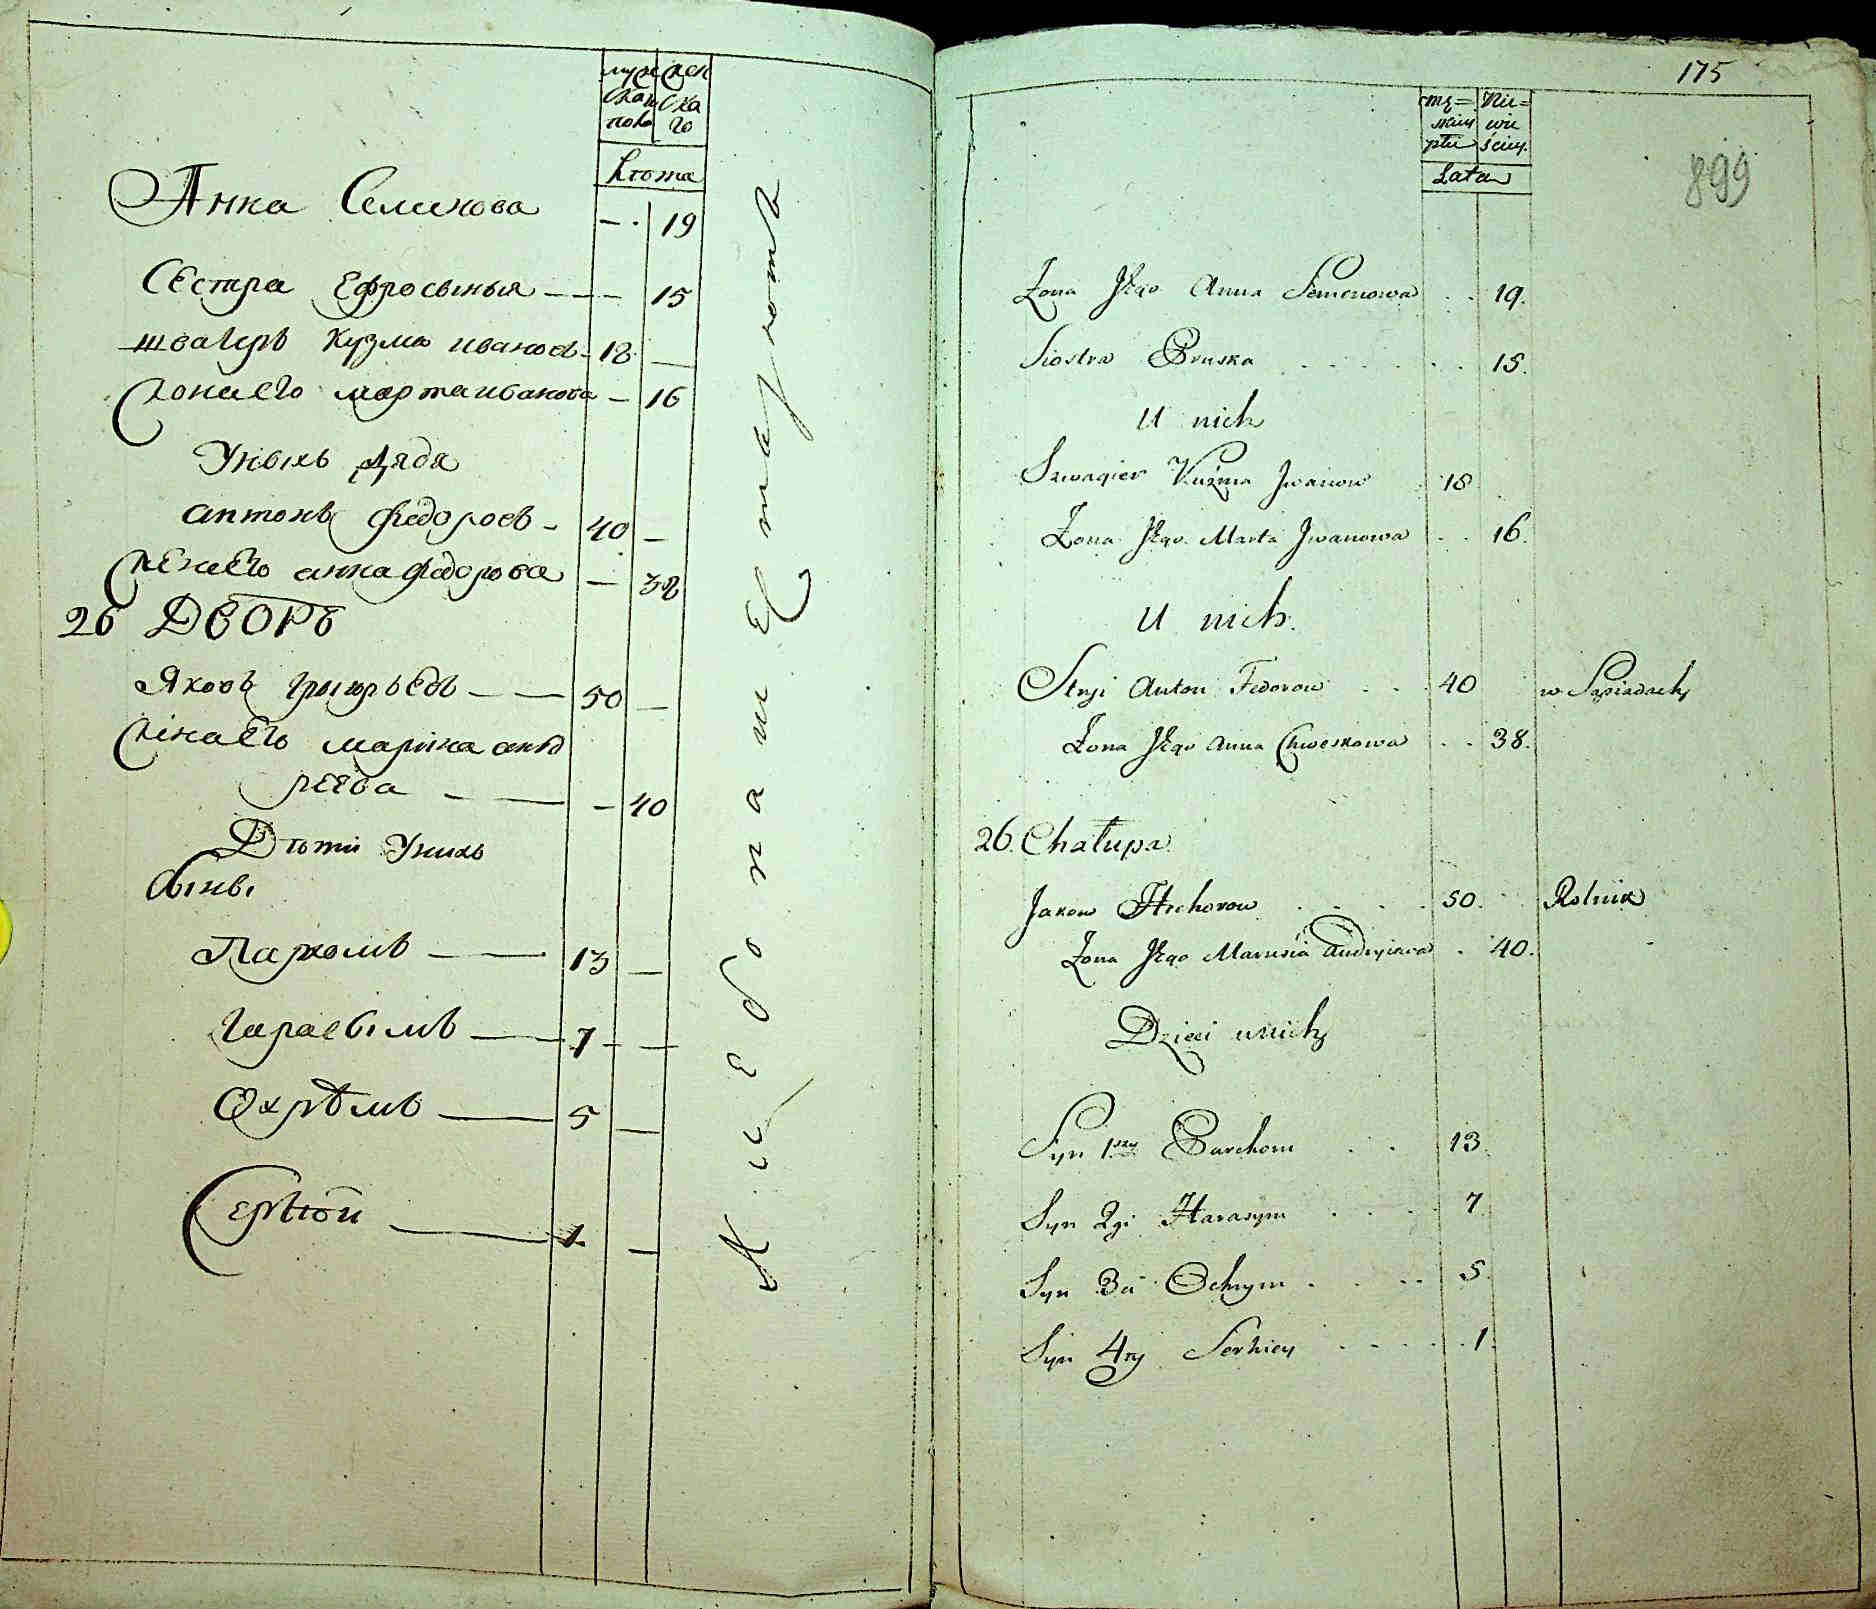 муж
ска
пола
жен
ска
го
Анка Семенова — 19
Сестра Ефросынья — 15
швагеръ Кузма ивановъ 18 —
жона его марта иванова — 16
Уныхъ дядя
антонъ федоровъ 40 —
жена его анна федорова — 38
26 Дворъ
Яковъ григорьевъ 50 —
жена его марина анд
реева — 40
Дѣти Унихъ
Сыны
Пархомъ 13 —
Гарасымъ 7 —
Охрѣмъ 5 —
Сергѣй 1 —
175
899
męz=
skiey
płci
Nie=
wie
ściey.
Lata
Zona Jego Anna Semenowa 19.
Siostra Pruska 15.
U nich
Szwagier Kuźma Jwanow 18
Zona Jego Marta Jwanowa 16.
U nich.
Stryi Anton Fedorow 40 w Sąsiadach
Zona Jego Anna Chweskowa 38.
26. Chałupa
Jakow Hrehorow 50. Rolnik
Zona Jego Marusia Andryiowa 40.
Dzieci unich
Syn 1szy Parchom 13.
Syn 2gi Harasym 7
Syn 3ci Ochrym 5.
Syn 4ty Serhiey 1.